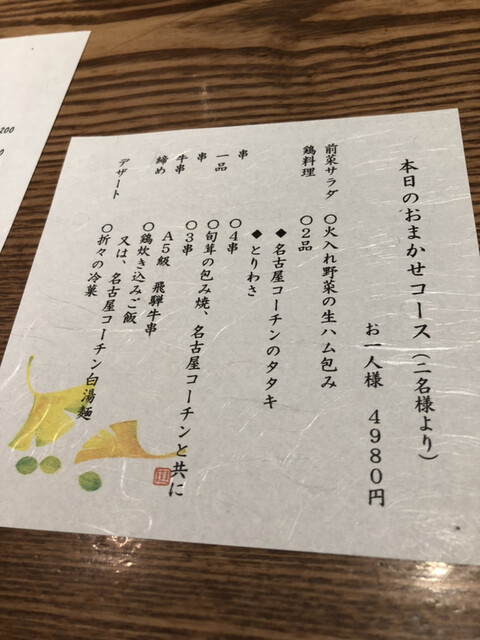 本日のおまかせコース（二名様より）
お一人様　４９８０円
前菜サラダ　〇火入れ野菜の生ハム包み
鶏料理　〇２品
◆名古屋コーチンのタタキ
◆とりわさ
串　〇４串
一品　〇旬茸の包み焼、名古屋コーチンと共に
串　〇３串
牛串　Ａ５級　飛騨牛串
締め　〇鶏炊き込みご飯
又は、名古屋コーチン白湯麺
デザート　〇折々の冷菓
200
0